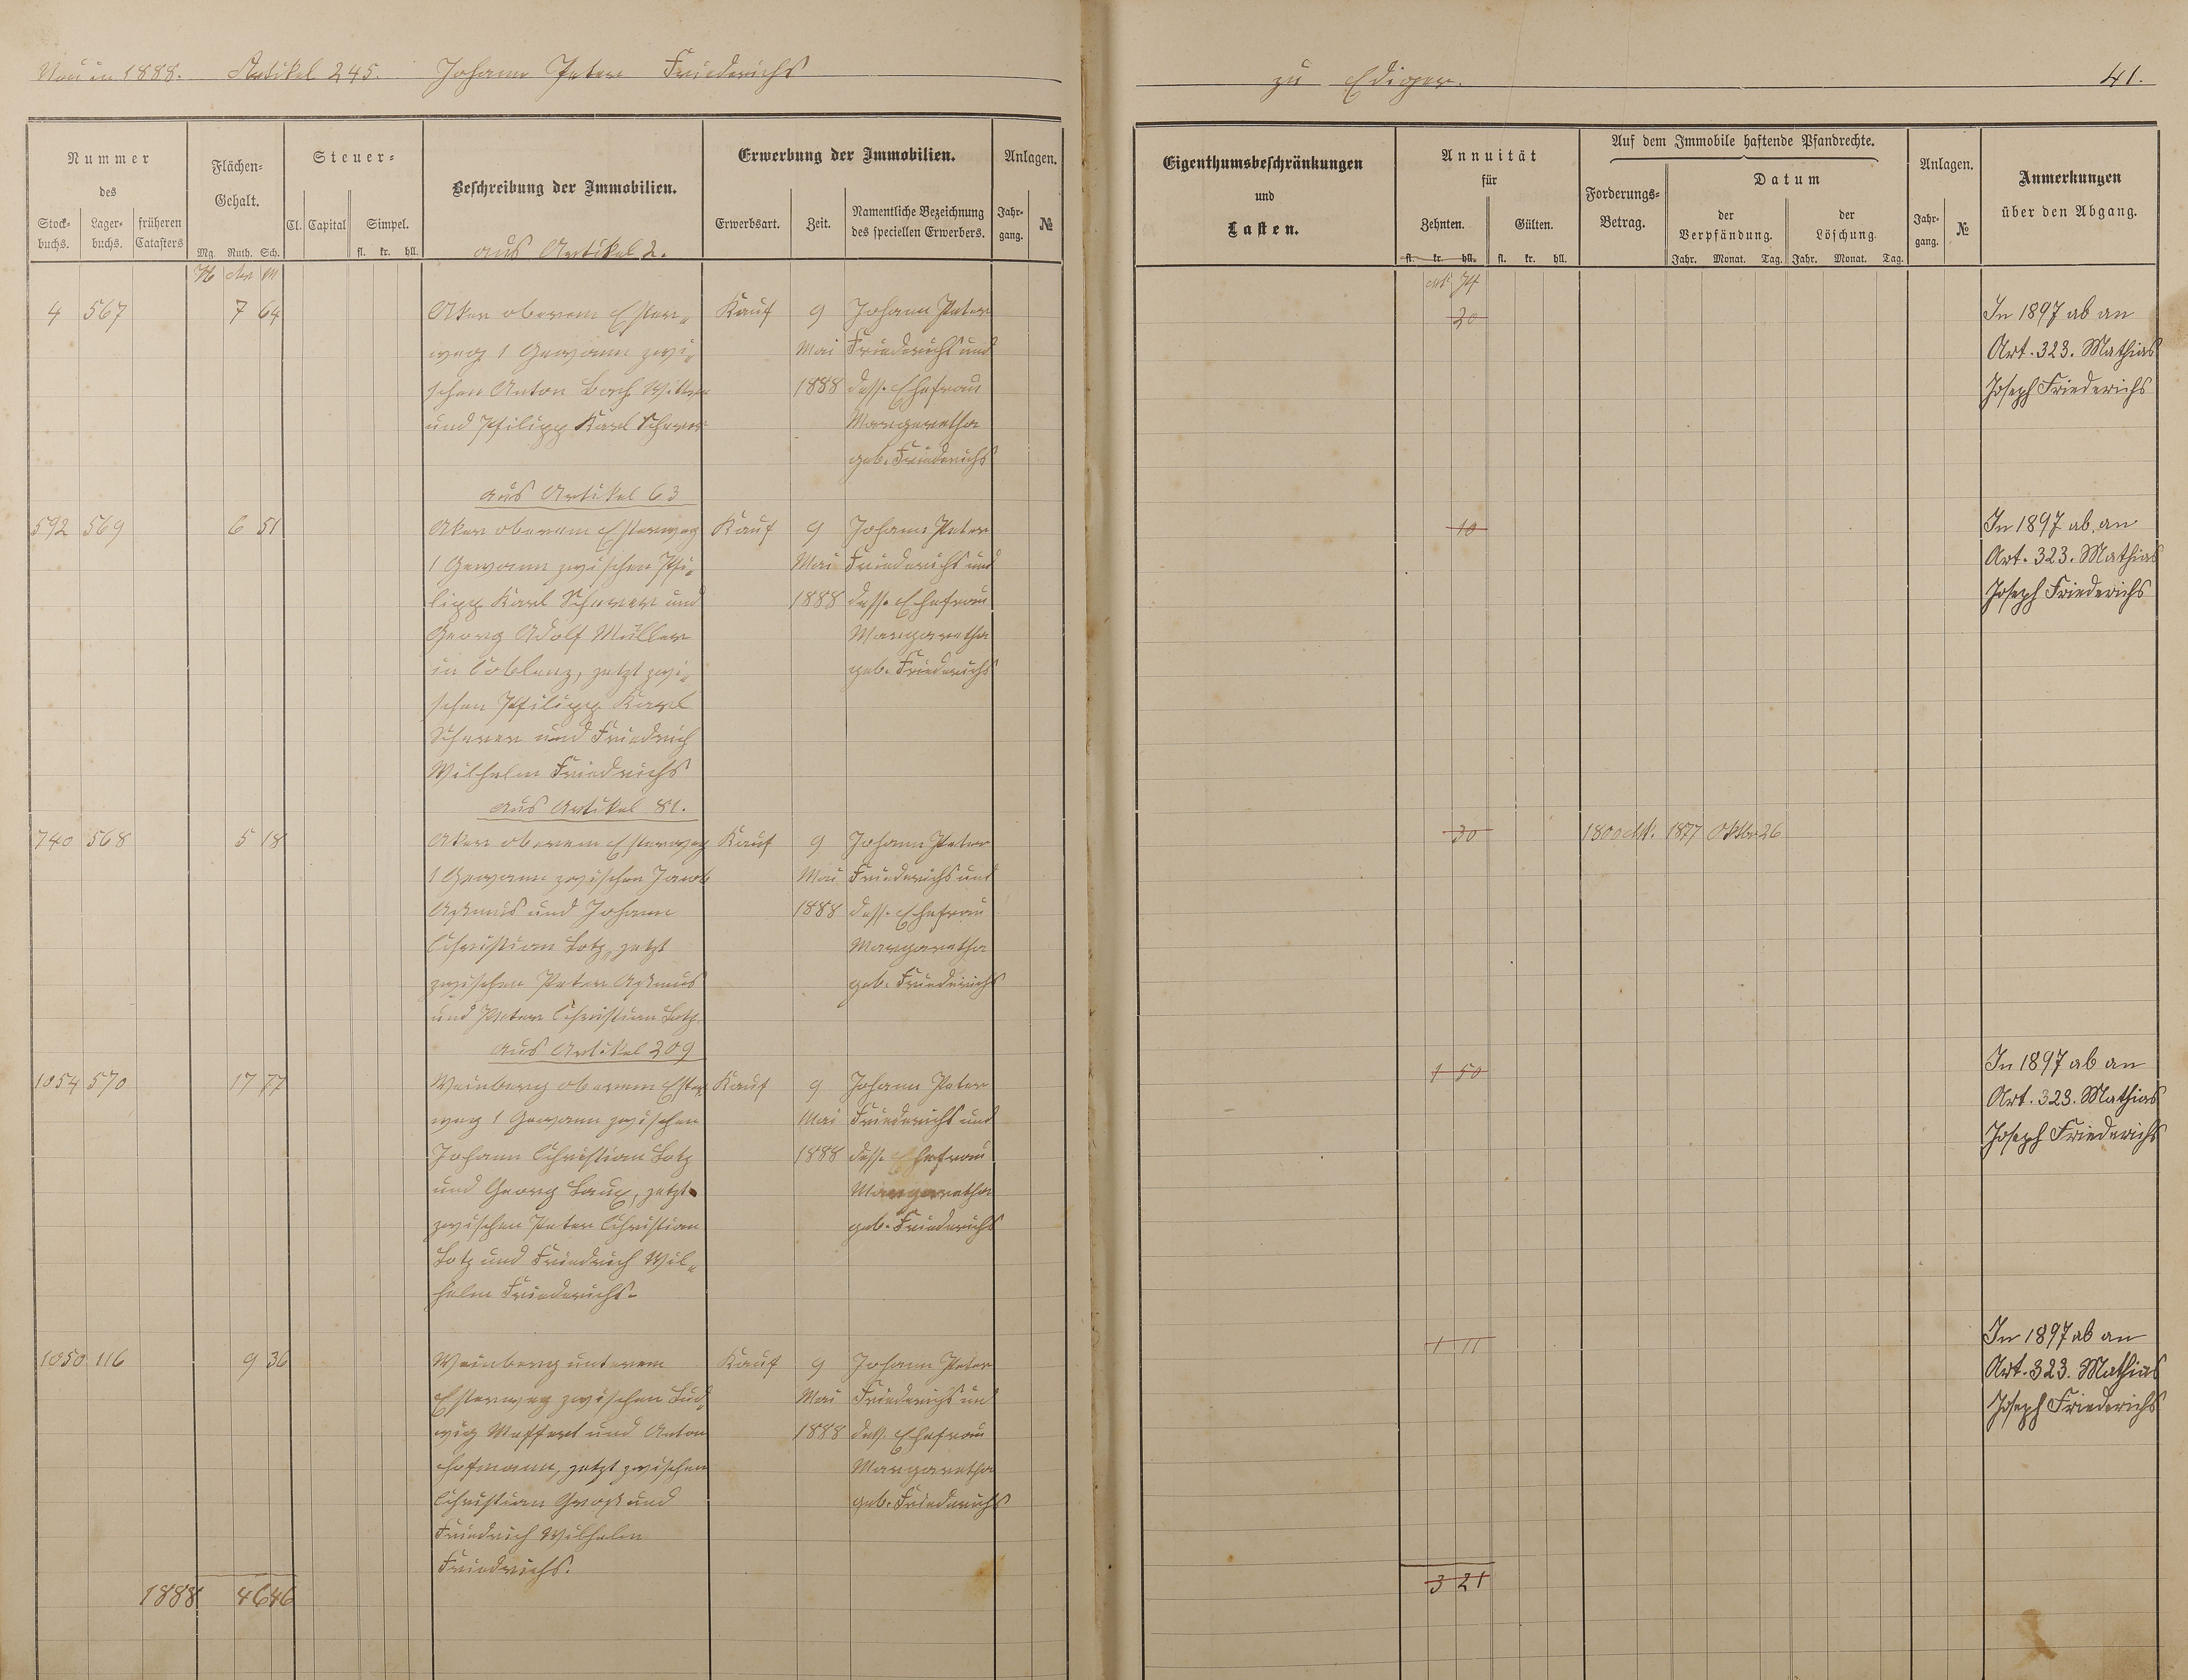 Neu in 1888. Artikel 245. Johann Peter Friederichs
zu Ediger. 41.
Nummer
des
Stock-buchs. Lager-buchs. früheren Catasters
Flächen-Gehalt.
Mg. Ruth. Sch.
Steuer-
Cl. Capital Simpel.
fl. kr. hll.
Beschreibung der Immobilien.
Erwerbung der Immobilien.
Erwerbsart. Zeit. Namentliche Bezeichnung des speciellen Erwerbers.
Anlagen.
Jahr-gang. №
Eigenthumsbeschränkungen
und
Lasten.
Annuität
für
Zehnten. Gülten.
fl. kr. hll. fl. kr. hll.
Auf dem Immobile haftende Pfandrechte.
Forderungs-Betrag.
Datum
der Verpfändung. der Löschung.
Jahr. Monat. Tag. Jahr. Monat. Tag.
Anlagen.
Jahr-gang. №
Anmerkungen
über den Abgang.
aus Artikel 2.
H Ar M
4 567 7 64 Aker oberem Ester„ Kauf 9 Johann Peter 20 In 1897 ab an
weg 1 Gewann zwi„ Mai Friederichs und Art. 323. Mathias
schen Anton Bach Witwe 1888 dess. Ehefrau Joseph Friederichs
und Philipp Karl Scherer Margaretha
geb. Friederichs
aus Artikel 63
592 569 6 51 Aker oberem Esterweg Kauf 9 Johann Peter 10 In 1897 ab an
1 Gewann zwischen Phi„ Mai Friederichs und Art. 323. Mathias
lipp Karl Scherer und 1888 dess. Ehefrau Joseph Friederichs
Georg Adolf Müller Margaretha
in Coblenz, jetzt zwi„ geb. Friederichs
schen Philipp Karl
Scherer und Friedrich
Wilhelm Friedrichs
aus Artikel 81.
740 568 5 18 Aker oberem Esterweg Kauf 9 Johann Peter 30 1800 Mk. 1877 Oktbr 26
1 Gewann zwischen Jacob Mai Friederichs und
und Johann 1888 dess. Ehefrau
Christian Lotz, jetzt Margaretha
zwischen Peter geb. Friederichs
und Peter Christian Lotz
aus Artikel 209
1054 570 17 77 Weinberg oberem Ester„ Kauf 9 Johann Peter 1 50 In 1897 ab an
weg 1 Gewann zwischen Mai Friederichs und Art. 323. Mathias
Johann Christian Lotz 1888 dess. Ehefrau Joseph Friederichs
und Georg Laux, jetzt Margaretha
zwischen Peter Christian geb. Friederichs
Lotz und Friedrich Wil„
helm Friederichs.
1050 116 9 36 Weinberg unterem Kauf 9 Johann Peter 1 11 In 1897 ab an
Esterweg zwischen Lud„ Mai Friederichs und Art. 323. Mathias
wig Meffert und Anton 1888 dess. Ehefrau Joseph Friederichs
Hofmann, jetzt zwischen Margaretha
Christian und geb. Friederichs
Friedrich Wilhelm
Friedrichs.
1888 46 46 3 21